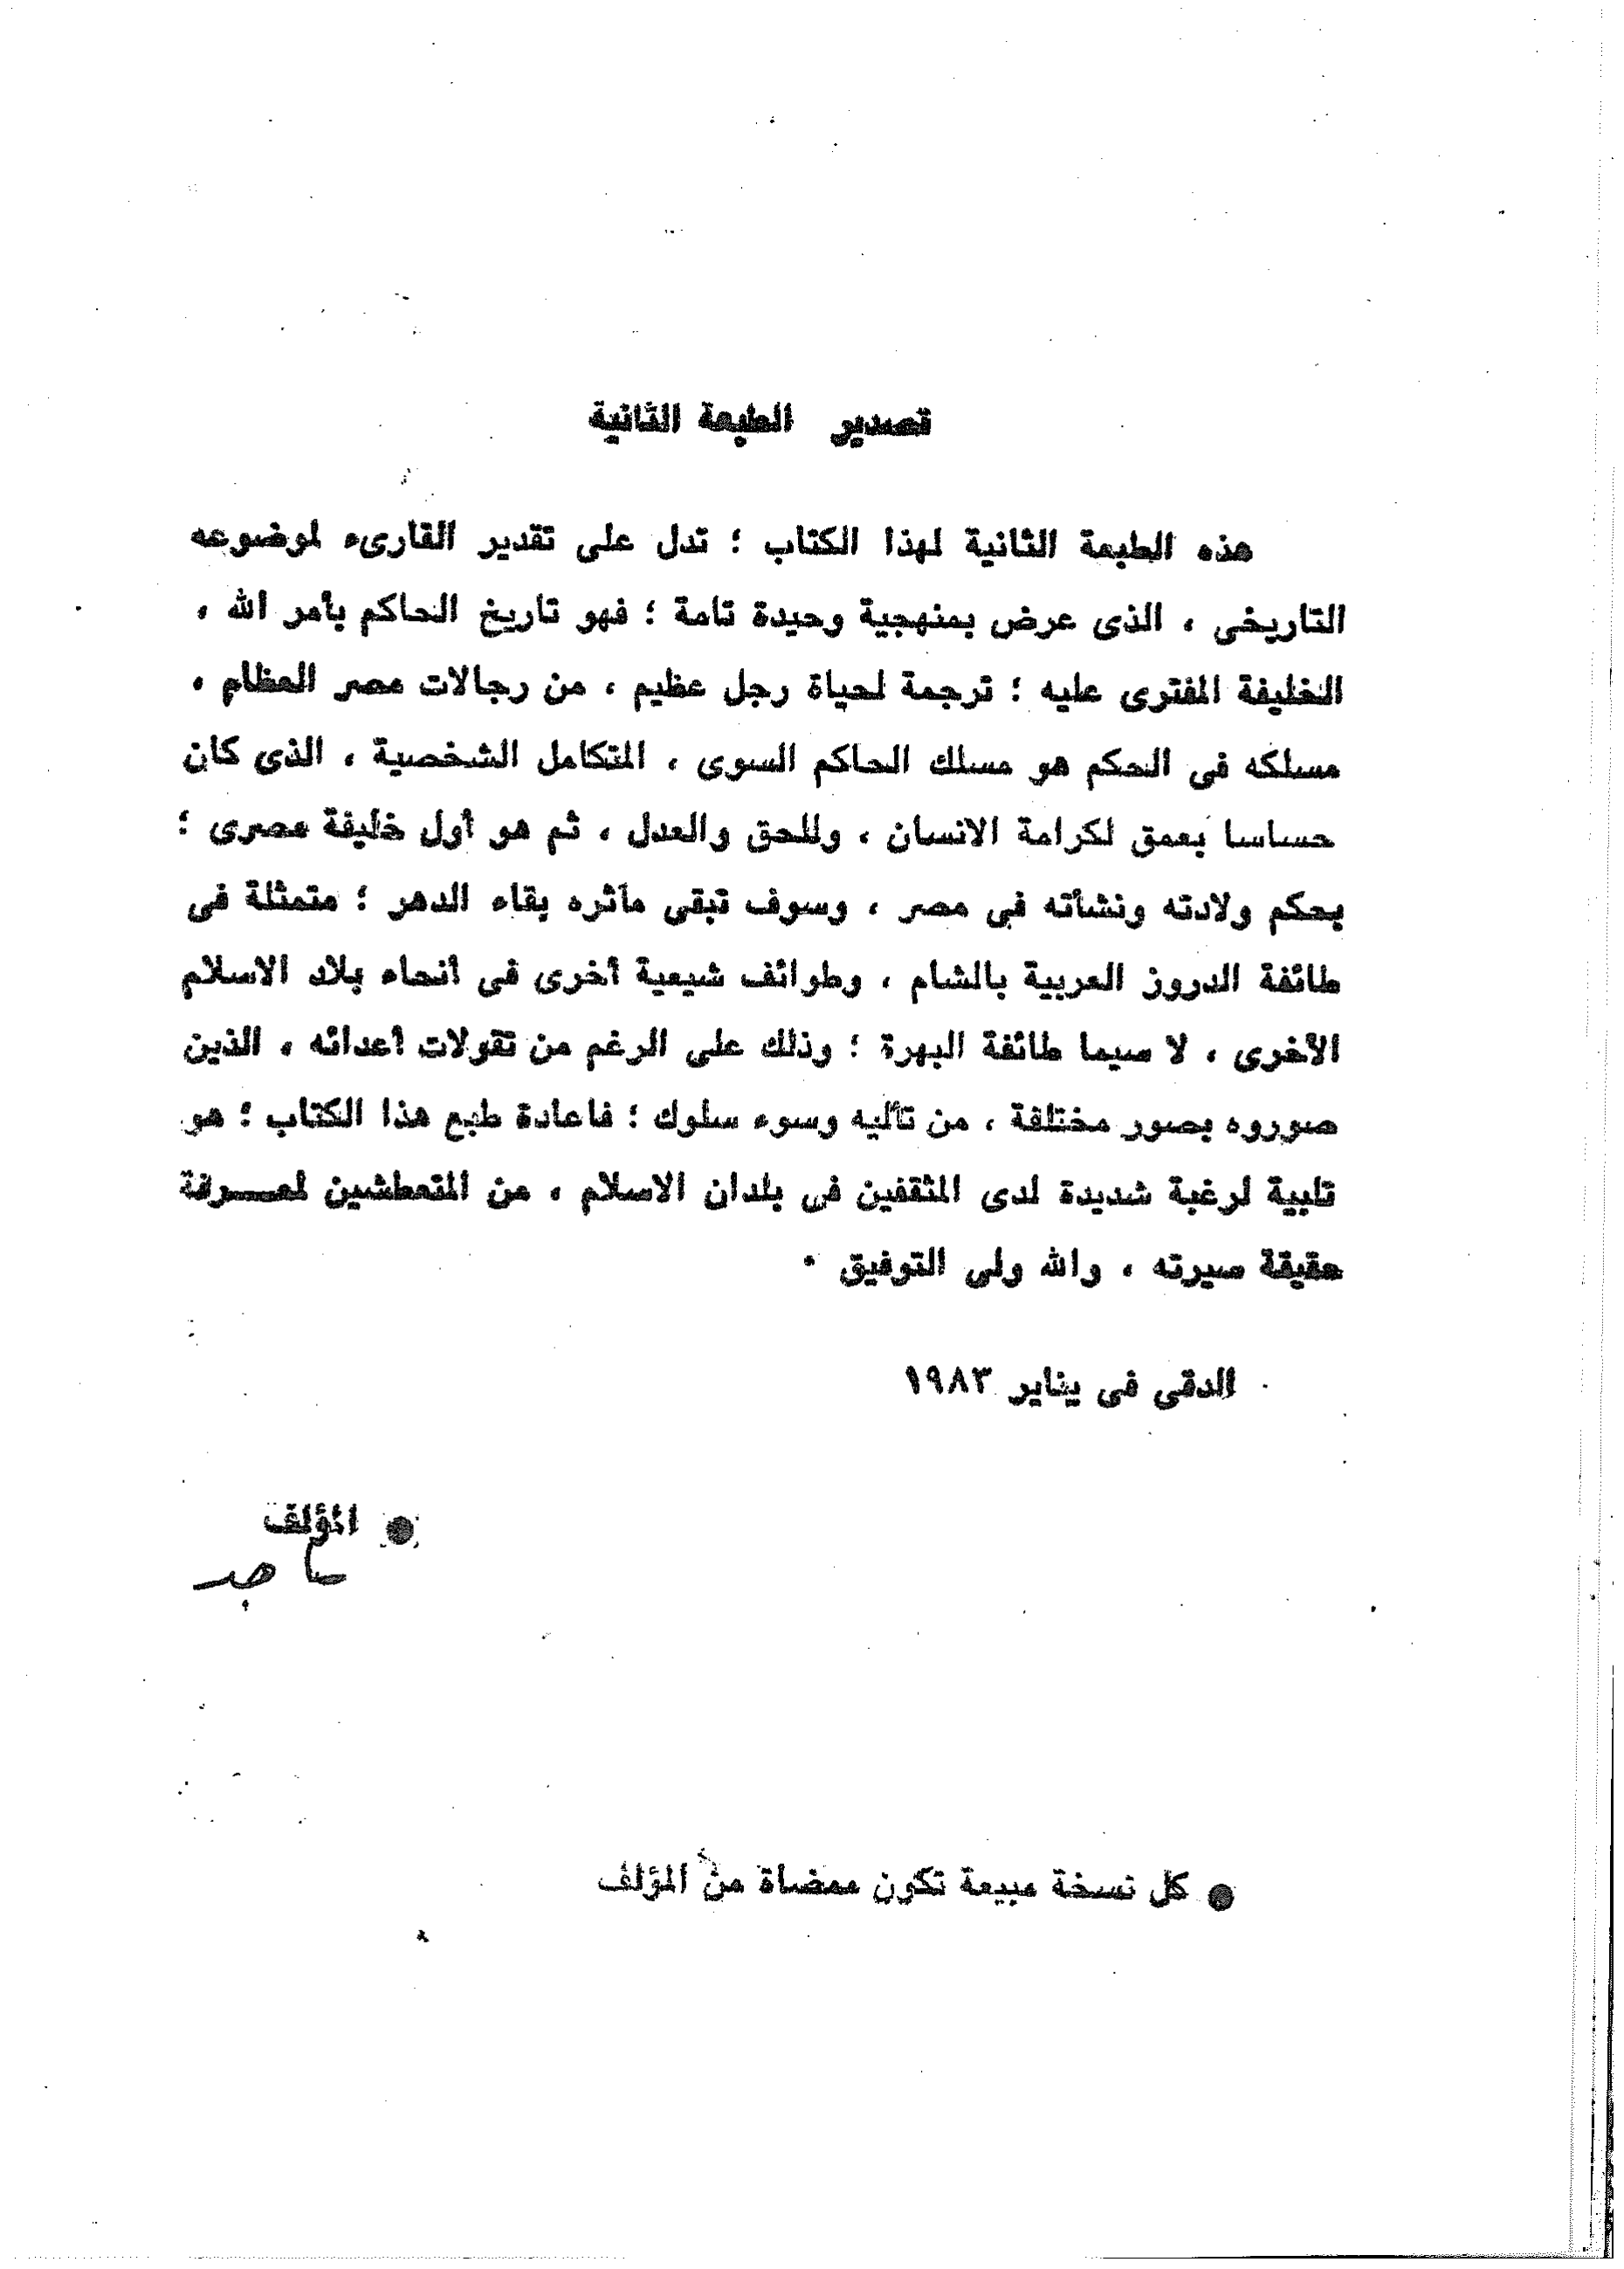 تصدير الطبعة الثانية
هذه الطبعة الثانية لهذا الكتاب ؛ تدل على تقدير القارىء لموضوعه
التاريخى ، الذى عرض بمنهجية وحيدة تامة ؛ فهو تاريخ الحاكم بأمر الله ،
الخليفة المفترى عليه ؛ ترجمة لحياة رجل عظيم ، من رجالات مصر العظام ،
مسلكه فى الحكم هو مسلك الحاكم السوى ، المتكامل الشخصية ، الذى كان
حساسا بعمق لكرامة الانسان ، وللحق والعدل ، ثم هو أول خليفة مصرى ؛
بحكم ولادته ونشأته فى مصر ، وسوف تبقى مآثره بقاء الدهر ؛ متمثلة فى
طائفة الدروز العربية بالشام ، وطوائف شيعية أخرى فى أنحاء بلاد الاسلام
الأخرى ، لا سيما طائفة البهرة ؛ وذلك على الرغم من تقولات أعدائه ، الذين
صوروه بصور مختلفة ، من تأليه وسوء سلوك ؛ فاعادة طبع هذا الكتاب ؛ هو
تلبية لرغبة شديدة لدى المثقفين فى بلدان الاسلام ، من المتعطشين لمعـــرفة
حقيقة سيرته ، والله ولى التوفيق ·
الدقى فى يناير ١٩٨٣
● المؤلف
ماجد
● كل نسخة مبيعة تكون ممضاة من المؤلف